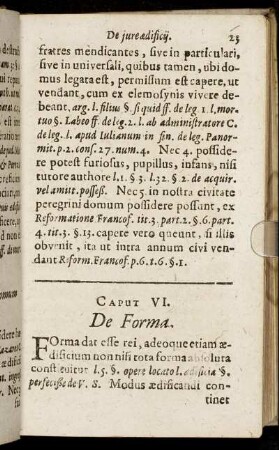 De jure ædificij. 23
fratres mendicantes, sive in particulari,
sive in universali, quibus tamen, ubi do-
mus legata est, permissum est capere, ut
vendant, cum ex elemosynis vivere de-
beant. arg. l. filius §. si quid ff. de leg. 1. l, mor-
tuo §. Labeo ff. de leg. 2. l. ab administratore C.
de leg. l. apud Iulianum in fin. de leg. Panor-
mit. p. 2. cons. 27. num. 4. Nec 4. posside-
re potest furiosus, pupillus, infans, nisi
tutore authore l. 1. § 3. l. 32. § 2. de acquir.
vel amitt. possess. Nec 5. in nostra civitate
peregrini domum possidere possunt, ex
Reformatione Francof. tit. 3. part. 2. §. 6. part.
4. tit. 3. §. 13. capere vero queunt, si illis
obvenit, ita ut intra annum civi ven-
dant Reform. Francof. p. 6. t. 6. §. 1.
CAPUT VI.
De Forma.
FOrma dat esse rei, adeoque etiam æ-
dificium non nisi tota forma absoluta
constituitur l. 5. §. opere locato l. ædificia §.
perfecisse de V. S. Modus ædificandi con-
tinet